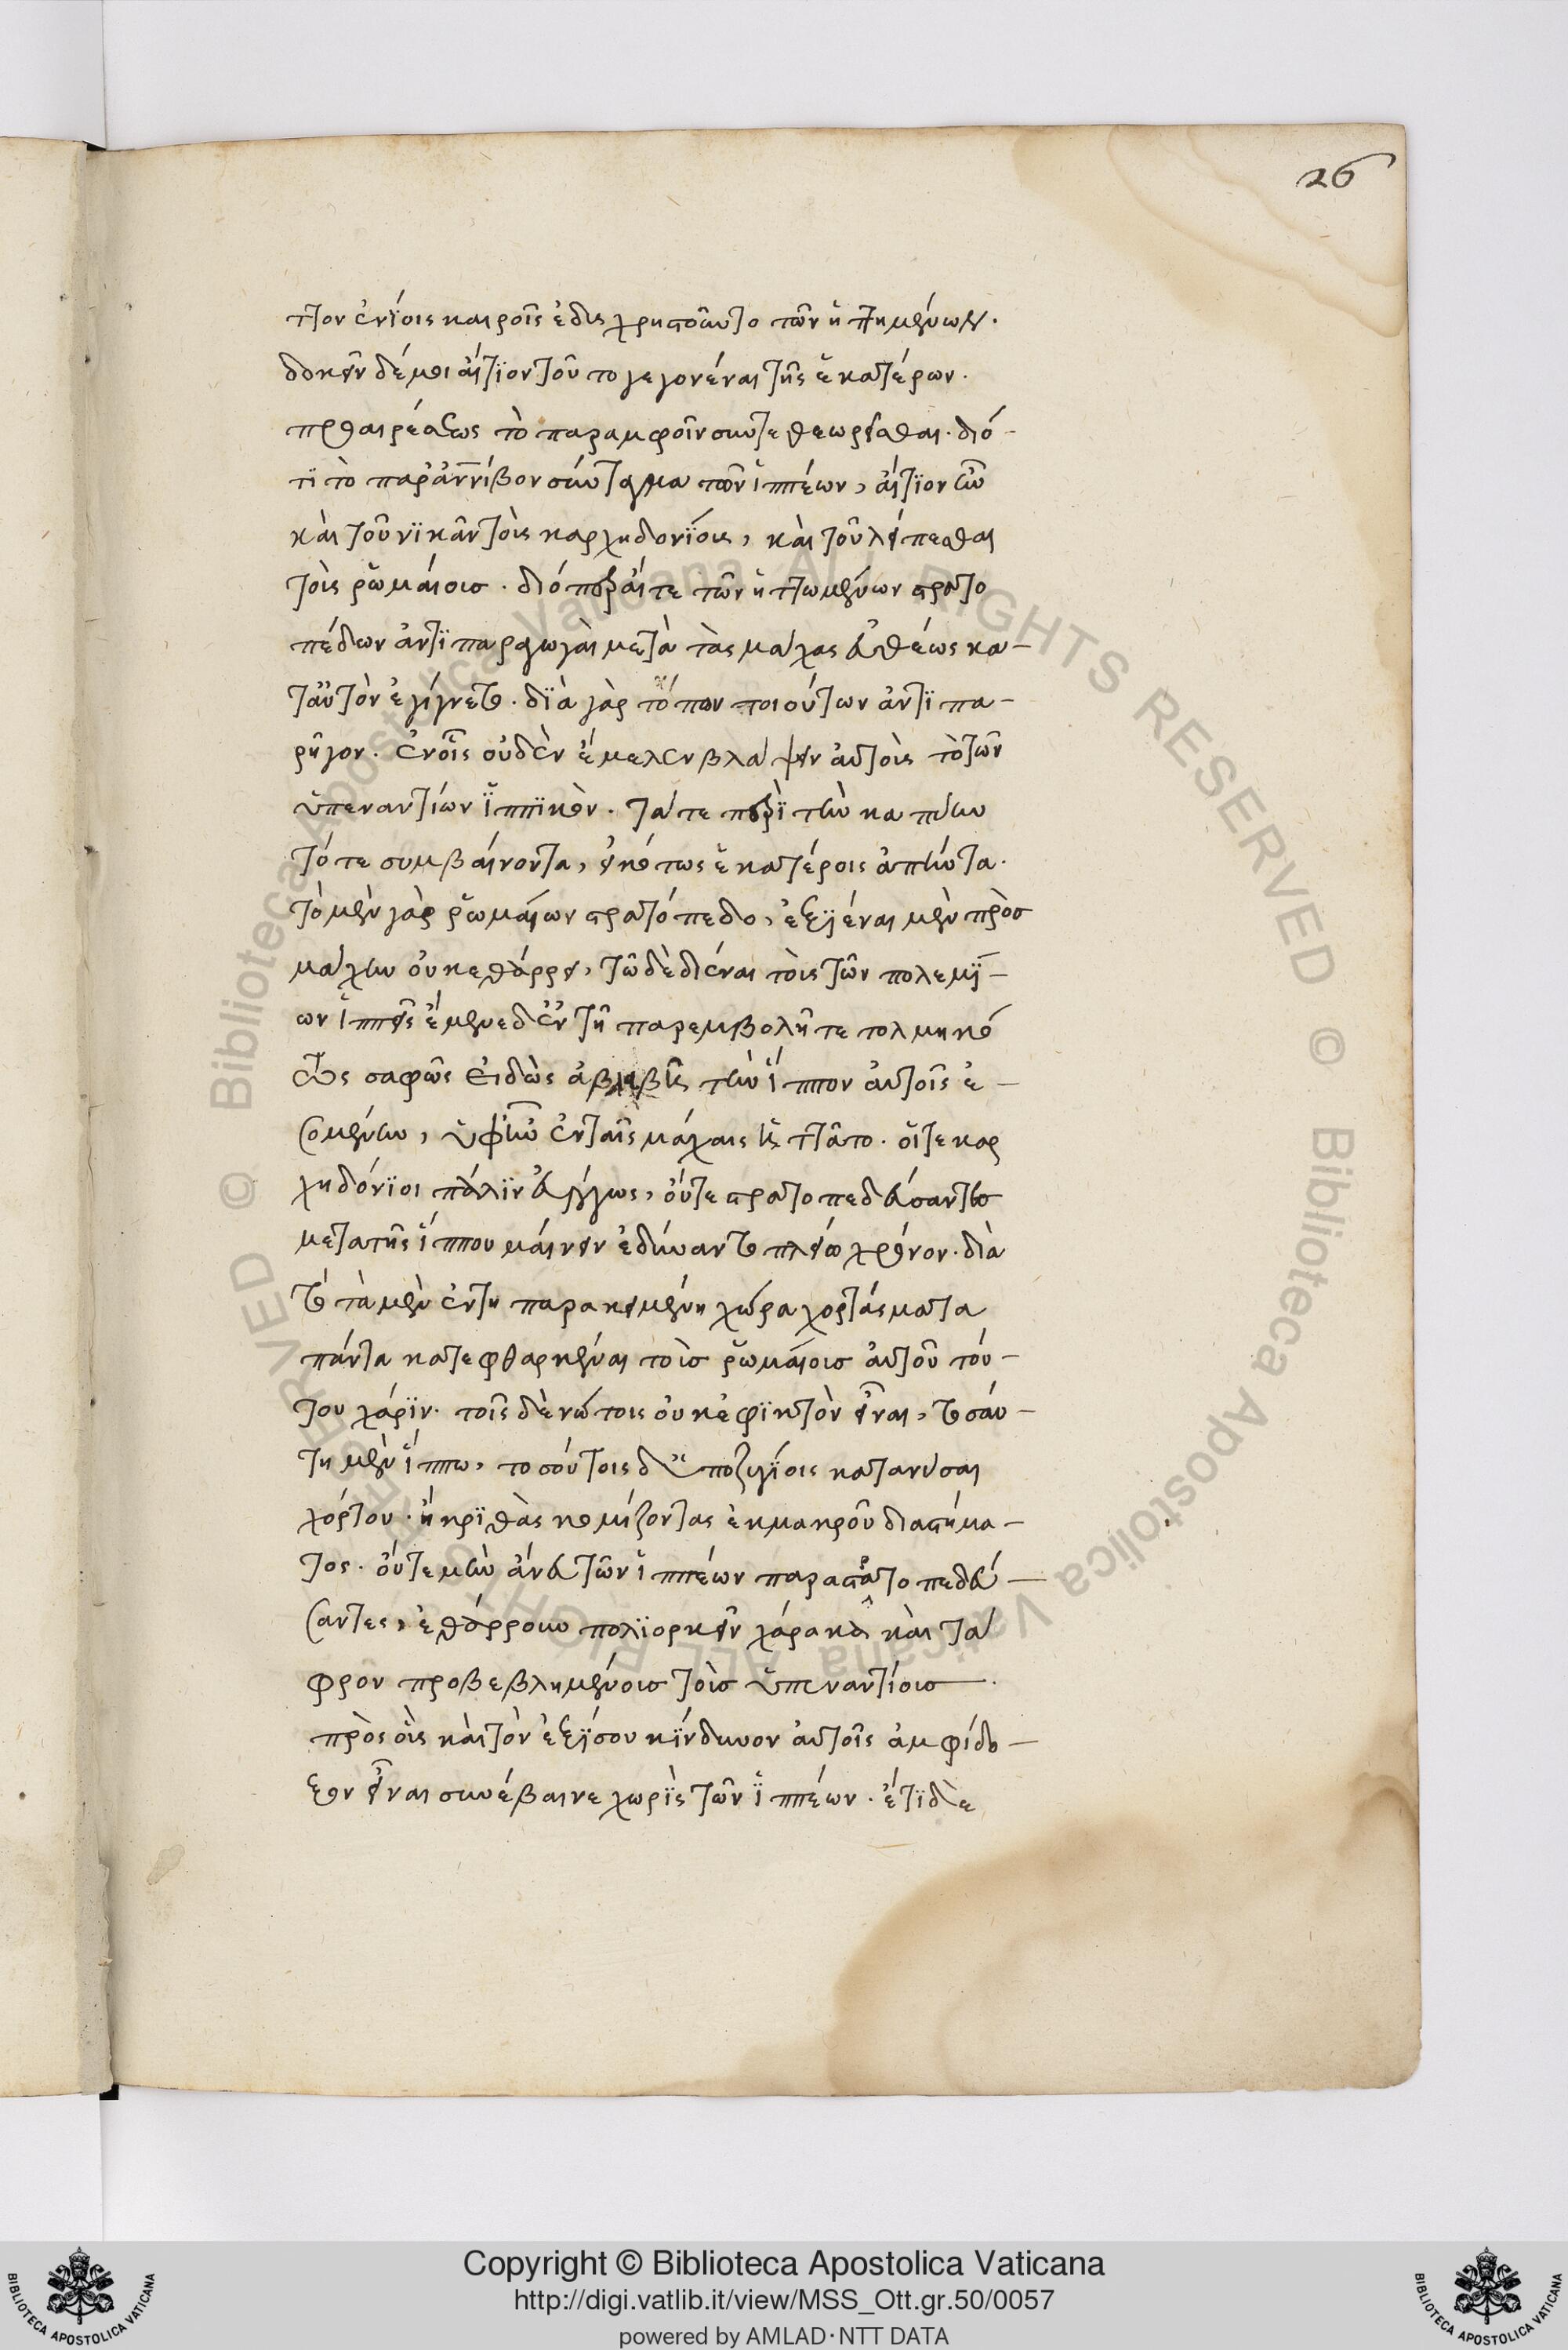 26
ττον ἐνίοις καιροῖς ἐδυσχρηστοῦντο τῶν ἡττημένων.
δοκεῖν δέ μοι αἴτϊον τοῦ το γεγονέναι τῆς ἑκατέρων.
προαιρέσεως τὸ παραμφοῖν συντε θεωρεῖσθαι. διό-
τϊ τὸ παρ' ἀννίβον σύνταγμα τῶν ἱππέων, αἴτϊον ἦν
καὶ τοῦ νϊκᾶν τοὺς καρχηδονΐους, καὶ τοῦ λείπεσθαι
τοὺς ῥωμαίους. διόπερ αἵ τε τῶν ἡττωμένων στρατο
πέδων ἀντϊπαραγωγαὶ μετὰ τὰς μάχας εὐθέως κα-
τ' αὐτὸν ἐγίγνετο. δϊὰ γὰρ τόπων ποιούτων ἀντϊπα-
ρῆγον. ἐν οἷς οὐδὲν ἔμελεν βλάψειν αὐτοὺς τὸ τῶν
ὑπεναντίων ἱππϊκόν. τά τε περὶ τὴν καπύην
τότε συμβαίνοντα, εἰκότως ἑκατέροις ἀπήντα.
τὸ μὲν γὰρ ῥωμαίων στρατόπεδο, ἐξϊέναι μὲν πρὸς
μάχην οὐκ ἐθάρρει, τῶ δεδιέναι τοὺς τῶν πολεμΐ-
ων ἱππεῖς ἔμενε δ' ἐν τῇ παρεμβολῆ τετολμηκό
τως σαφῶς εἰδὼς ἀβλαβῆς τὴν ἵππον αὐτοῖς ἐ-
σομένην, ὑφ' ἣν ἐν ταῖς μάχαις ἡττᾶτο. οἵ τε καρ
χηδόνϊοι πάλϊν εὐλόγως, οὔτε στρατοπεδεύσαντες
μετὰ τῆς ἵππου μένειν ἐδύναντο πλείω χρόνον. διὰ
τὸ τὰ μὲν ἐν τῆ παρακειμένη χώρα χορτάσματα
πάντα κατεφθαρκέναι τοὺς ῥωμαίους αὐτοῦ τού-
του χάρϊν. τοῖς δὲ νώτοις οὐκ ἐφϊκτὸν εἶναι, τοσαύ-
τη μὲν ἵππω, τοσούτοις δ' ὑποζυγΐοις κατανύσαι
χόρτον. ἢ κρϊθὰς κομίζοντας ἐκ μακροῦ διαστήμα-
τος. οὔτε μὴν ἄνευ τῶν ἱππέων παραστρατοπεδεύ-
σαντες, ἐθάρρουν πολϊορκεῖν χάρακα καὶ τά
φρον προβεβλημένους τοὺς ὑπεναντίους.
πρὸς οὓς καὶ τὸν ἐξΐσου κΐνδυνον αὐτοῖς ἀμφίδο-
ξον εἶναι συνέβαινε χωρὶς τῶν ἱππέων. ἔτϊ δὲ
Copyright © Biblioteca Apostolica Vaticana
http://digi.vatlib.it/view/MSS_Ott.gr.50/0057
powered by AMLAD·NTT DATA